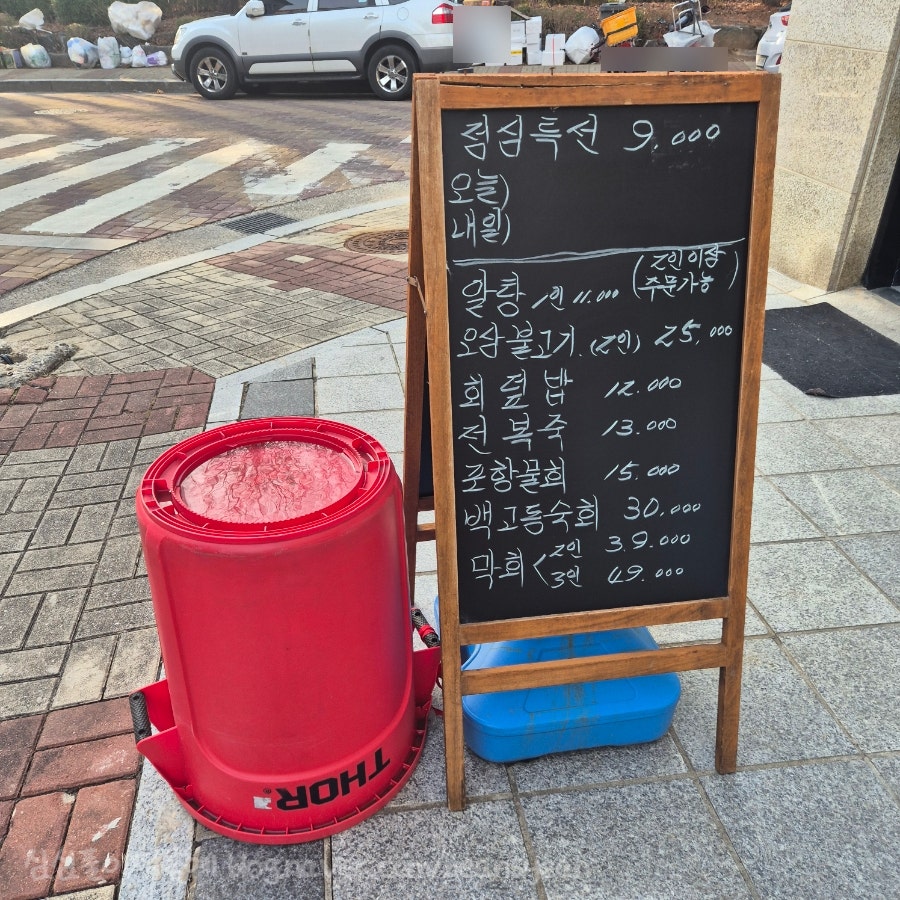 점심특선 9.000
오늘)
내일)
알탕 1인 11.000 (2인이상 주문가능)
오삼불고기.(2인) 25.000
회덮밥 12.000
전복죽 13.000
포항물회 15.000
백고동숙회 30.000
막회< 2인 39.000
3인 49.000
THOR